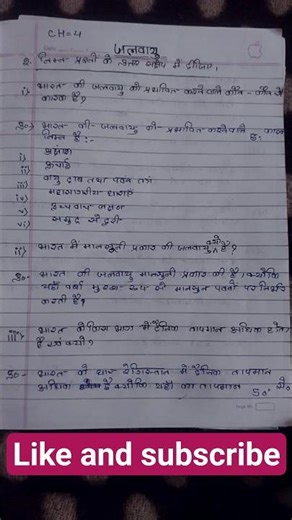 CH=4
जलवायु
2. निम्न प्रश्नों के उत्तर संक्षेप में दीजिए।
i) भारत की जलवायु को प्रभावित करने वाले कौन - कौन से
कारक हैं?
उ०- भारत की जलवायु को प्रभावित करने वाले कारक
निम्न हैं:-
i) अक्षांश
ii) ऊंचाई
iii) वायु दाब तथा पवन तंत्र
iv) महासागरीय धाराएं
v) उच्चावच लक्षण
vi) समुद्र से दूरी
ii) भारत में मानसूनी प्रकार की जलवायु क्यों है?
उ०- भारत की जलवायु मानसूनी प्रकार की है क्योंकि
यहाँ वर्षा मुख्य रूप से मानसून पवनों पर निर्भर
करती है।
iii) भारत के किस भाग में दैनिक तापमान अधिक होता
है एवं क्यों?
उ०- भारत के थार रेगिस्तान में दैनिक तापमान
अधिक है क्योंकि यहाँ का तापमान 50° से०
Like and subscribe